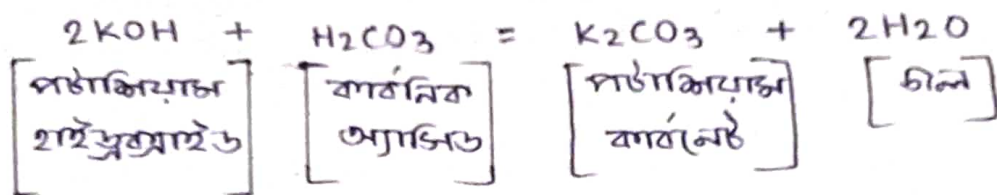 2KOH + H2CO3 = K2CO3 + 2H2O
[পটাশিয়াম হাইড্রক্সাইড] [কার্বনিক অ্যাসিড] [পটাশিয়াম কার্বনেট] [জল]